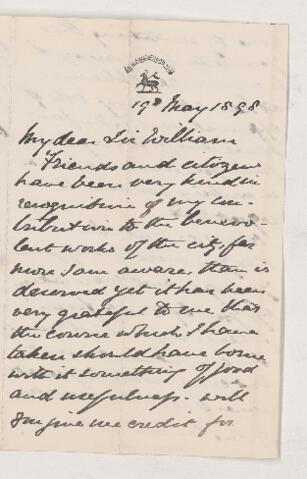 19th May 1898
My dear Sir William
Friends and citizens
have been very kind in
recognition of my con-
tribution to the benevo-
lent works of the city, far
more I am aware, than is
deserved yet it has been
very grateful to me that
the course which I have
taken should have borne
with it something of good
and usefulness. Will
you give me credit for